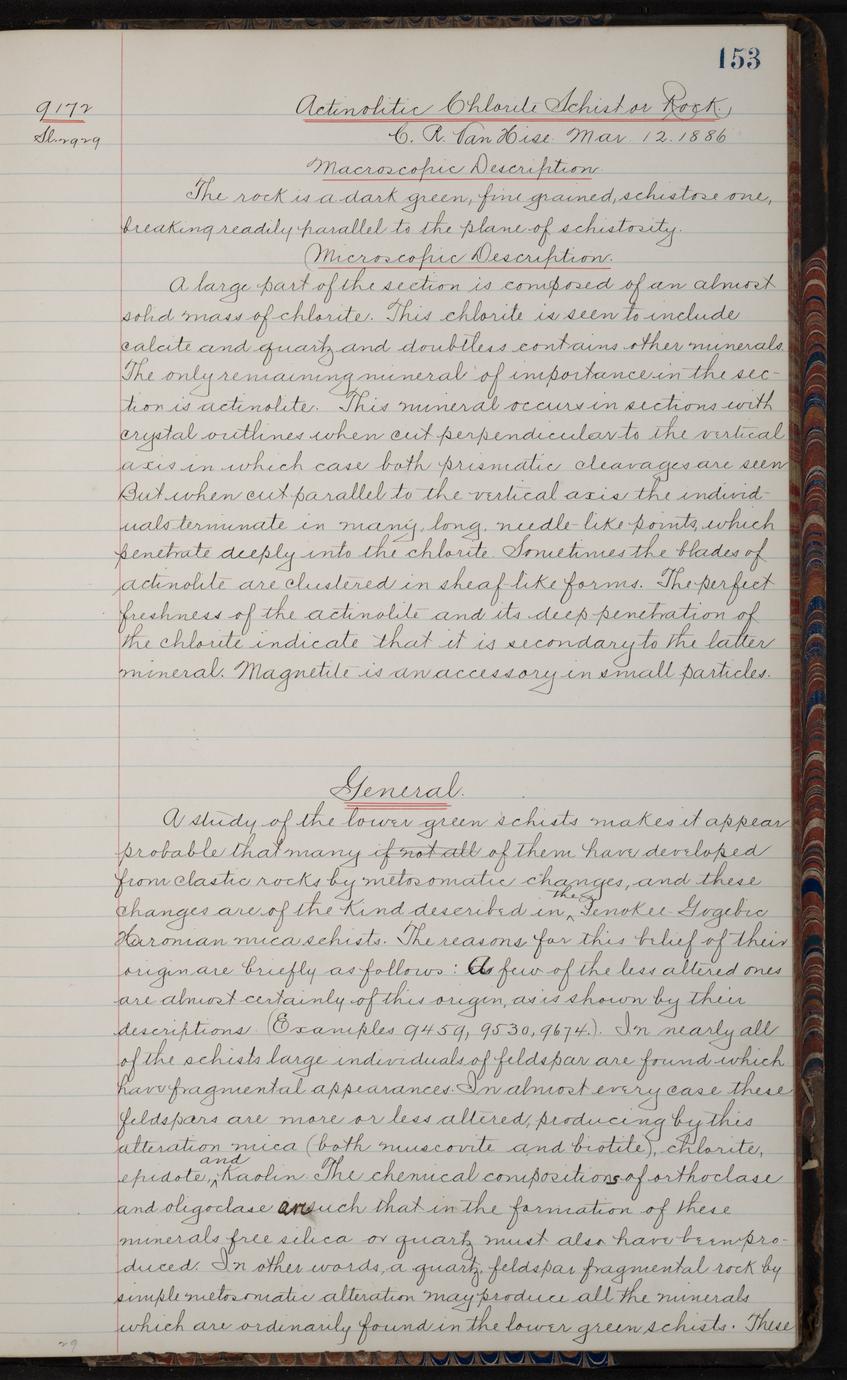 153
9172
Sl. 2929
Actinolitic Chlorite Schist or Rock.
C. R. Van Hise. Mar. 12. 1886
Macroscopic Description
The rock is a dark green, fine grained, schistose one,
breaking readily parallel to the plane of schistosity.
Microscopic Description.
A large part of the section is composed of an almost
solid mass of chlorite. This chlorite is seen to include
calcite and quartz and doubtless contains other minerals.
The only remaining mineral of importance in the sec-
tion is actinolite. This mineral occurs in sections with
crystal outlines when cut perpendicular to the vertical
axis in which case both prismatic cleavages are seen
But when cut parallel to the vertical axis the individ-
uals terminate in many, long, needle-like points, which
penetrate deeply into the chlorite. Sometimes the blades of
actinolite are clustered in sheaf like forms. The perfect
freshness of the actinolite and its deep penetration of
the chlorite indicate that it is secondary to the latter
mineral. Magnetite is an accessory in small particles.
General.
A study of the lower green schists makes it appear
probable that many if not all of them have developed
from clastic rocks by metosomatic changes, and these
changes are of the kind described in the Penokee-Gogebic
Huronian mica schists. The reasons for this belief of their
origin are briefly as follows: A few of the less altered ones
are almost certainly of this origin, as is shown by their
descriptions (Examples 9459, 9530, 9674.). In nearly all
of the schists large individuals of feldspar are found which
have fragmental appearances. In almost every case these
feldspars are more or less altered, producing by this
alteration mica (both muscovite and biotite), chlorite,
epidote, and Kaolin. The chemical compositions of orthoclase
and oligoclase are such that in the formation of these
minerals free silica or quartz must also have been pro-
duced. In other words, a quartz, feldspar fragmental rock by
simple metosomatic alteration may produce all the minerals
which are ordinarily found in the lower green schists. These
29